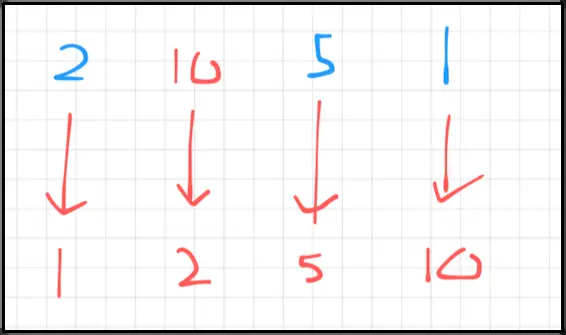 2 10 5 1
1 2 5 10